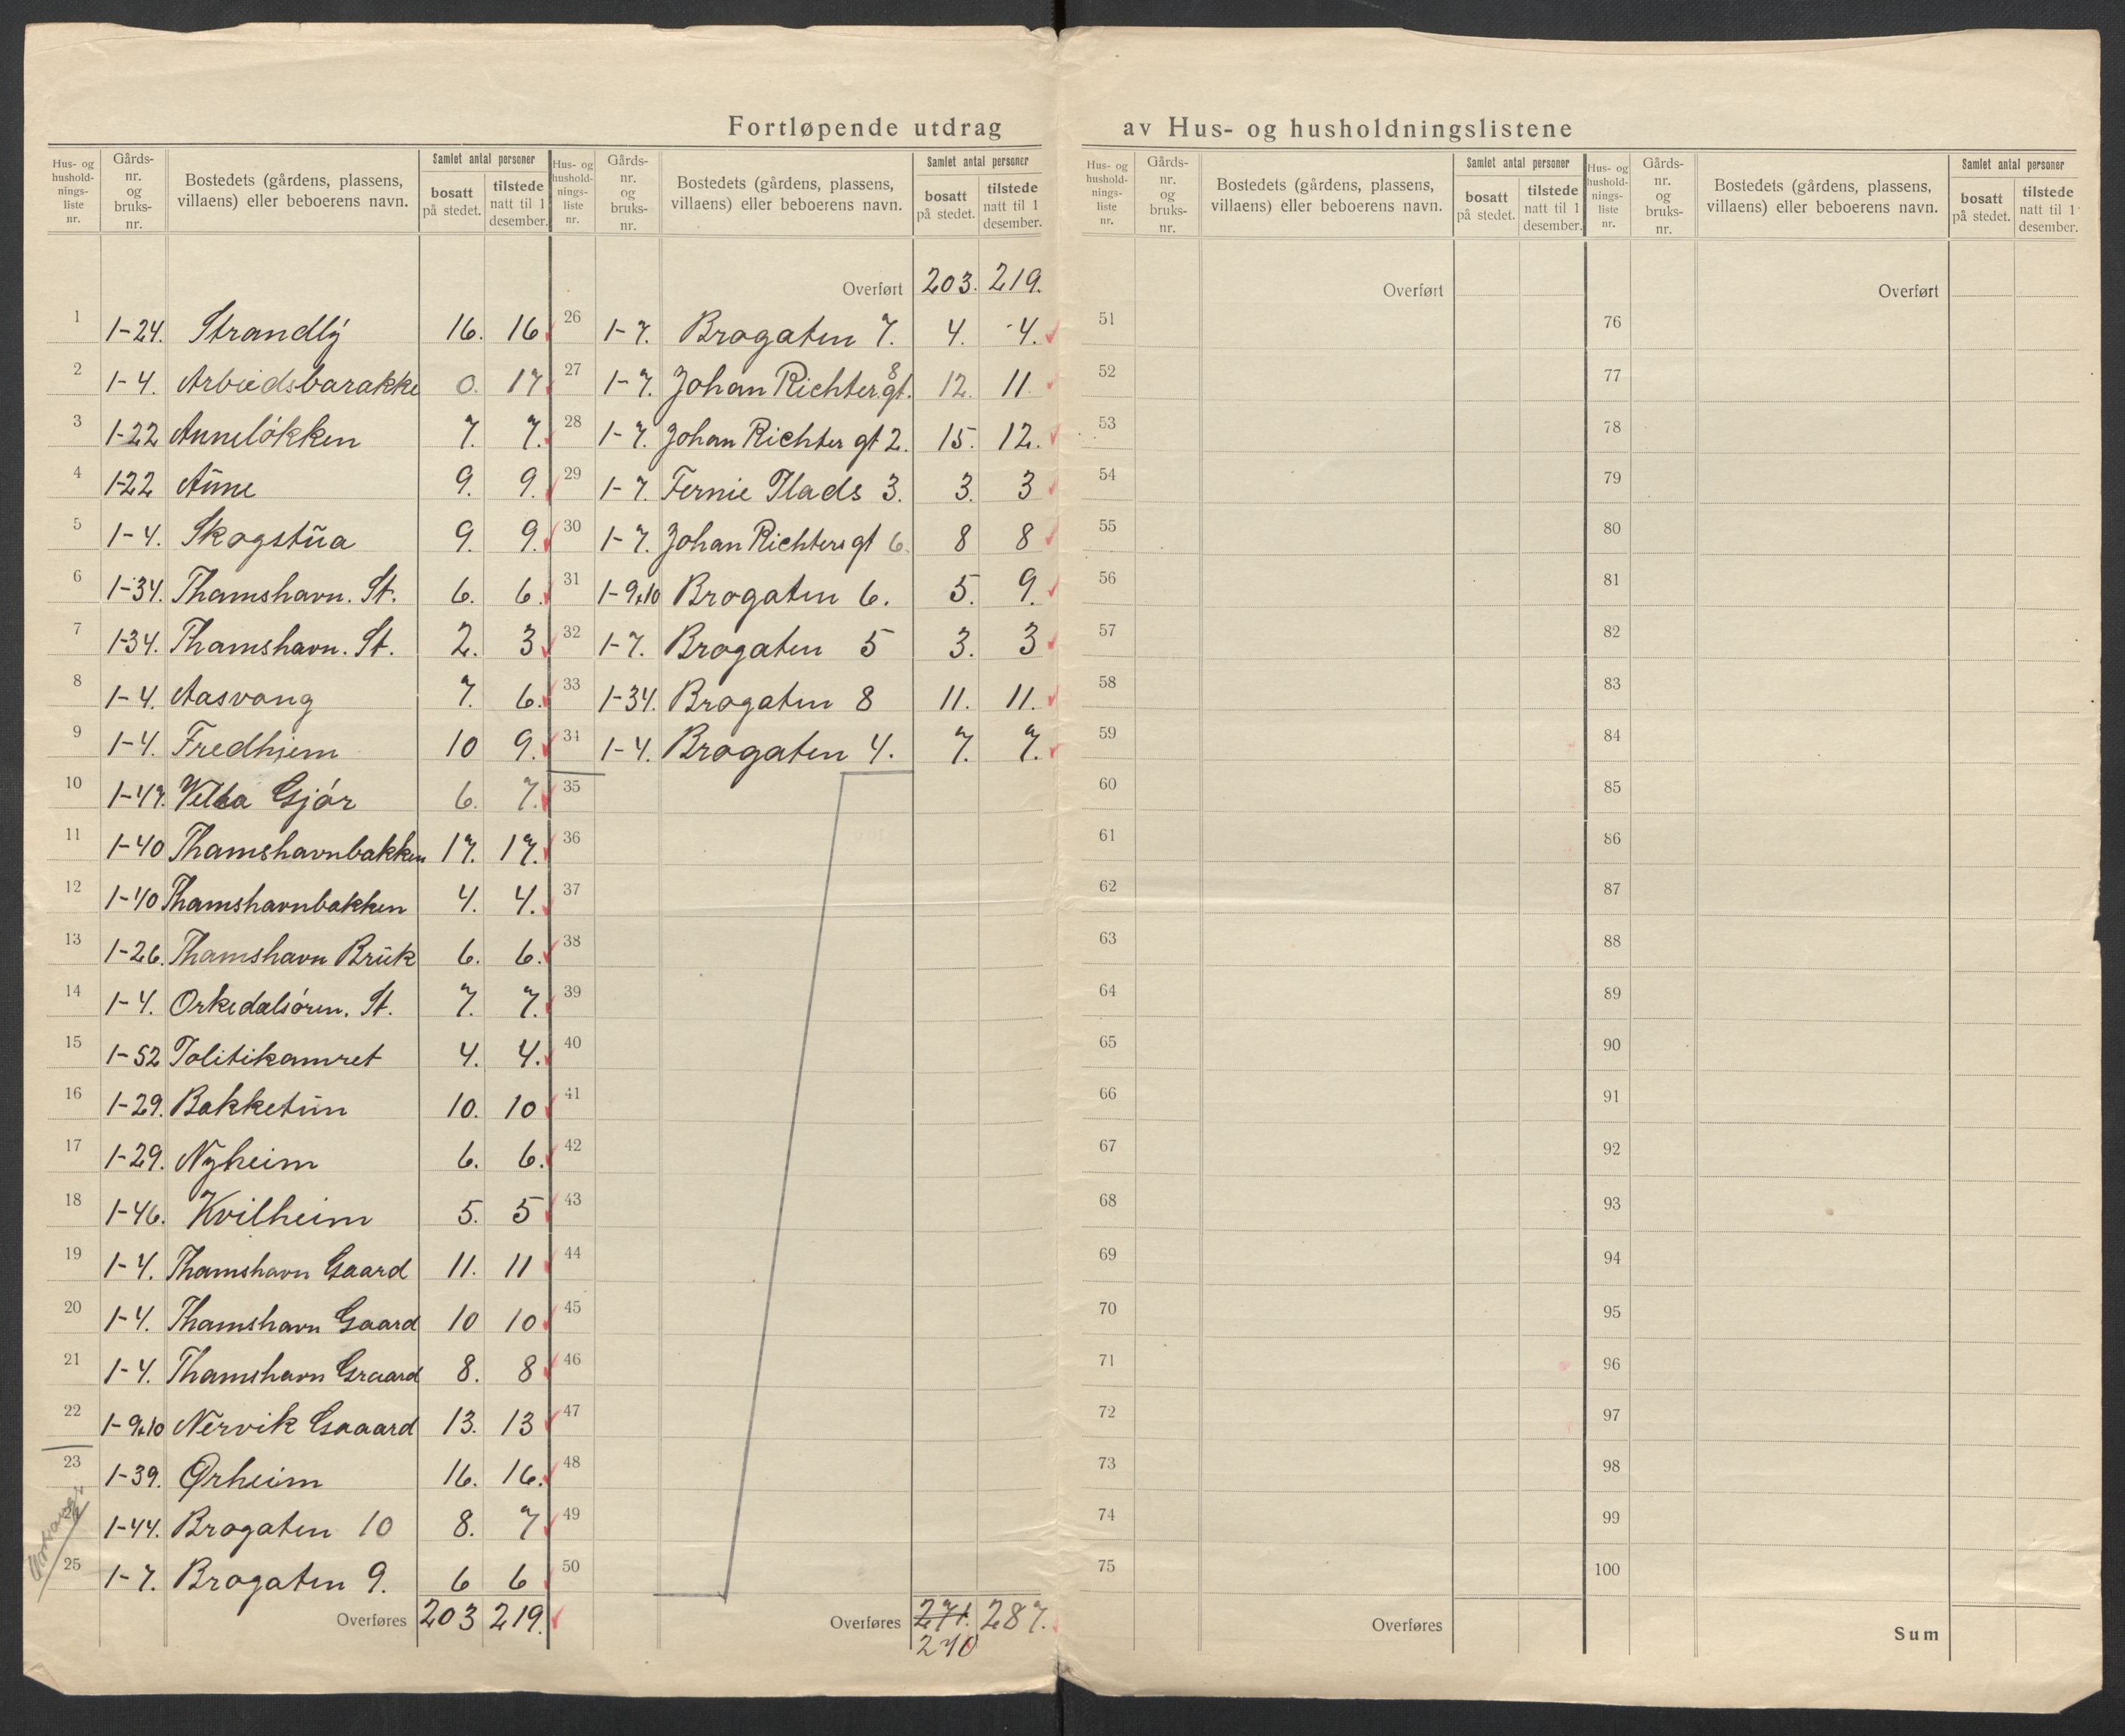 Fortløpende utdrag av Hus- og husholdningslistene
Hus- og hushold-nings-liste nr. Gårds-nr. og bruks-nr. Bostedets (gårdens, plassens, villaens) eller beboerens navn. Samlet antal personer bosatt på stedet. tilstede natt til 1 desember.
1 1-24. Strandly 16. 16
2 1-4. Arbeidsbarakke 0. 17
3 1-22 Anneløkken 7. 7.
4 1-22 Aune 9. 9.
5 1-4. Skogstua 9. 9.
6 1-34. Thamshavn. St. 6. 6.
7 1-34. Thamshavn. St. 2. 3
8 1-4. Aasvang 7. 6.
9 1-4. Fredhjem 10 9.
10 1-47. Gjør 6. 7.
11 1-40 Thamshavnbakken 17. 17.
12 1-40 Thamshavnbakken 4. 4.
13 1-26. Thamshavn Bruk 6. 6.
14 1-4. Orkedalsøren. St. 7. 7.
15 1-52 Politikamret 4. 4.
16 1-29. Bakketun 10. 10
17 1-29. Nyheim 6. 6.
18 1-46. Kvilheim 5. 5
19 1-4. Thamshavn Gaard 11. 11
20 1-4. Thamshavn Gaard 10 10
21 1-4. Thamshavn Graard 8. 8
22 1-9,10 Nervik Gaaard 13. 13
23 1-39. Ørheim 16. 16.
1-44. Brogaten 10 8. 7
25 1-7. Brogaten 9. 6 6
Overføres 203 219.
Hus- og hushold-nings-liste nr. Gårds-nr. og bruks-nr. Bostedets (gårdens, plassens, villaens) eller beboerens navn. Samlet antal personer bosatt på stedet. tilstede natt til 1 desember.
Overført 203. 219.
26 1-7. Brogaten 7. 4. 4.
27 1-7. Johan Richter.gt. 8 12. 11
28 1-7. Johan Richter gt 2. 15. 12.
29 1-7. Fernie Plads 3. 3. 3
30 1-7. Johan Richters gt 6. 8 8
31 1-9,10 Brogaten 6. 5. 9.
32 1-7. Brogaten 5 3. 3
33 1-34. Brogaten 8 11. 11.
34 1-4. Brogaten 4. 7. 7.
35
36
37
38
39
40
41
42
43
44
45
46
47
48
49
50
Overføres 271. 287.
270
Hus- og hushold-nings-liste nr. Gårds-nr. og bruks-nr. Bostedets (gårdens, plassens, villaens) eller beboerens navn. Samlet antal personer bosatt på stedet. tilstede natt til 1 desember.
Overført
51
52
53
54
55
56
57
58
59
60
61
62
63
64
65
66
67
68
69
70
71
72
73
74
75
Overføres
Hus- og hushold-nings-liste nr. Gårds-nr. og bruks-nr. Bostedets (gårdens, plassens, villaens) eller beboerens navn. Samlet antal personer bosatt på stedet. tilstede natt til 1 desember.
Overført
76
77
78
79
80
81
82
83
84
85
86
87
88
89
90
91
92
93
94
95
96
97
98
99
100
Sum